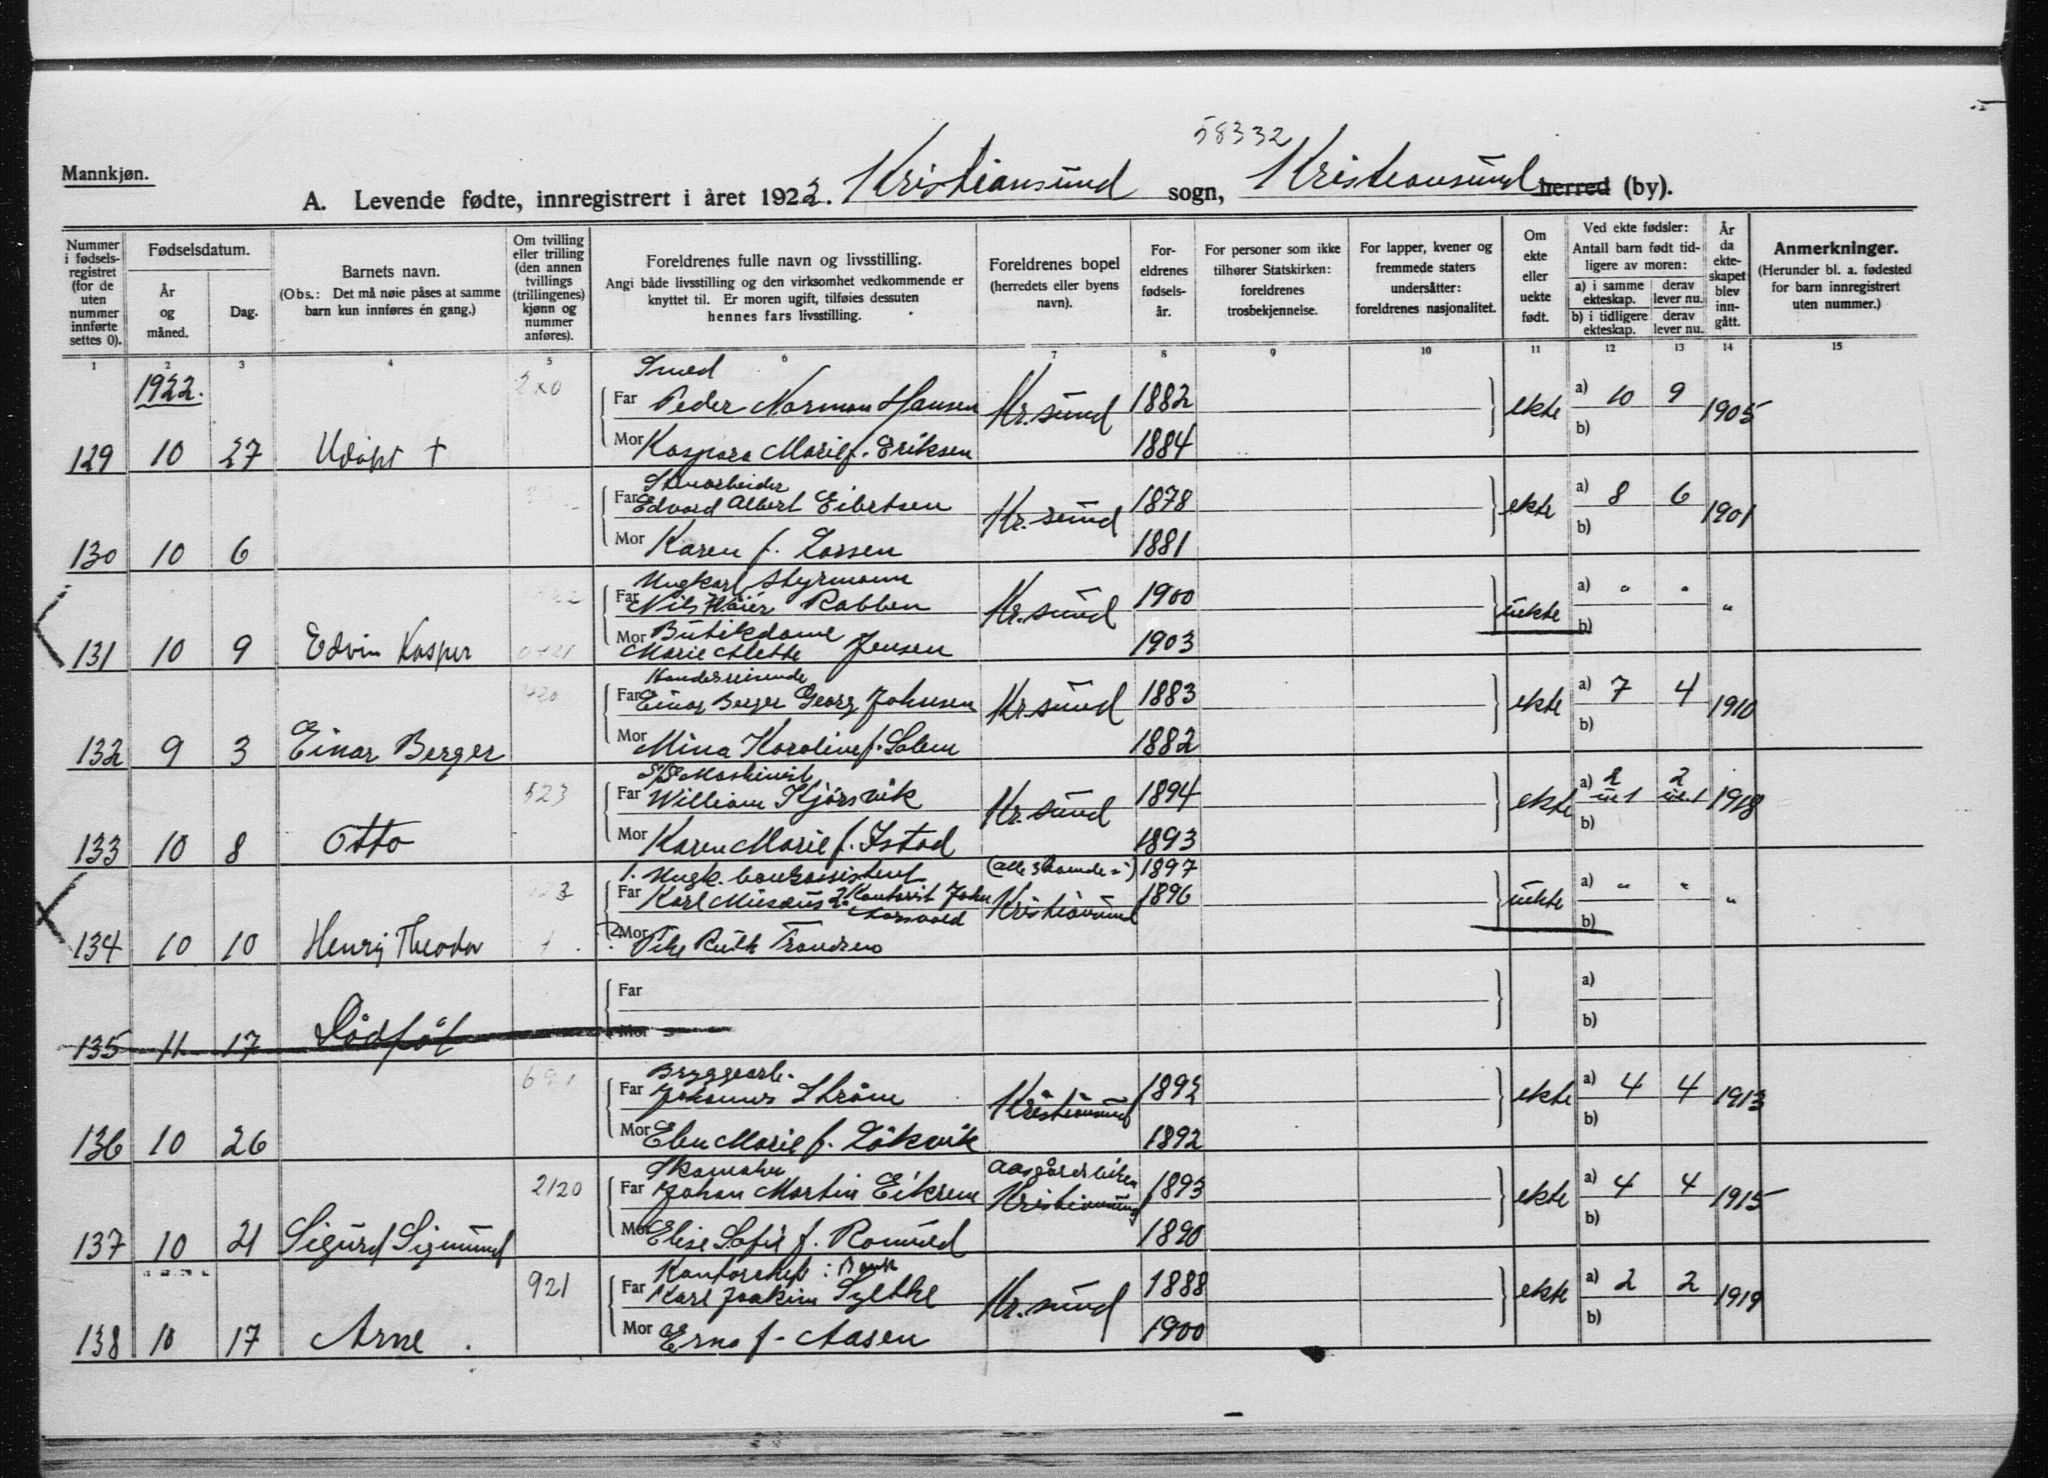 58332
Mannkjøn.
A. Levende fødte, innregistrert i året 1922. Kristiansund sogn, Kristiansund herred (by).
Nummer i fødsels-registret (for de uten nummer innførte settes 0).
Fødselsdatum.
År og måned.
Dag.
Barnets navn.
(Obs.: Det må nøie påses at samme barn kun innføres én gang.)
Om tvilling eller trilling (den annen tvillings (trillingenes) kjønn og nummer anføres).
Foreldrenes fulle navn og livsstilling.
Angi både livsstilling og den virksomhet vedkommende er knyttet til. Er moren ugift, tilføies dessuten hennes fars livsstilling.
Foreldrenes bopel (herredets eller byens navn).
For-eldrenes fødsels-år.
For personer som ikke tilhører Statskirken: foreldrenes trosbekjennelse.
For lapper, kvener og fremmede staters undersåtter: foreldrenes nasjonalitet.
Om ekte eller uekte født.
Ved ekte fødsler:
Antall barn født tid-ligere av moren:
a) i samme ekteskap.
derav lever nu.
b) i tidligere ekteskap.
derav lever nu.
År da ekte-skapet blev inn-gått.
Anmerkninger.
(Herunder bl. a. fødested for barn innregistrert uten nummer.)
1 2 3 4 5 6 7 8 9 10 11 12 13 14 15
1922. 2x0 Smed
Far Peder Norman Hansen Kr.sund 1882 ekte a) 10 9 1905
129 10 27 Udøpt † Mor Kaspara Marie f. Eriksen 1884 b)
Stenarbeider
Far Edvard Albert Eibertsen Kr.sund 1878 ekte a) 8 6 1901
130 10 6 Mor Karen f. Larsen 1881 b)
Ungkarl Styrmann
Far Nils Rabben Kr.sund 1900 uekte a) " " "
Mor Butikdame
131 10 9 Edvin Kasper Marie Alette Jensen 1903 b)
Handelsreisende
Far Einar Berger Georg Johnsen Kr.sund 1883 ekte a) 7 4 1910
132 9 3 Einar Berger Mor Mina Karoline f. Salem 1882 b)
523 Maskinist
Far William Kjørsvik Kr.sund 1894 ekte a) 2 2 1918
u.1 u.1
133 10 8 Otto Mor Karen Marie f. Istad 1893 b)
1. Ungk. bankassistent (alle 3 ) 1897
Far Karl Musæus 2. Kontorist John Kristiansund 1896 uekte a) " " "
134 10 10 Henry Theodor Mor Ruth Frandsen b)
Far a)
135 11 17 Dødfød Mor b)
Bryggearb.
Far Johannes Strøm Kristiansund 1892 ekte a) 4 4 1913
136 10 26 Mor Elen Marie f. Løkvik 1892 b)
2120 Skomaker
Far Johan Martin Eikrem Kristiansund 1893 ekte a) 4 4 1915
137 10 21 Sigurd Sigmund Mor Elise Sofie f. Romuld 1890 b)
921 Kontorchef i Bank
Far Karl Joakim Sylthe Kr.sund 1888 ekte a) 2 2 1919
138 10 17 Arne. Mor Erna f. Aasen 1900 b)